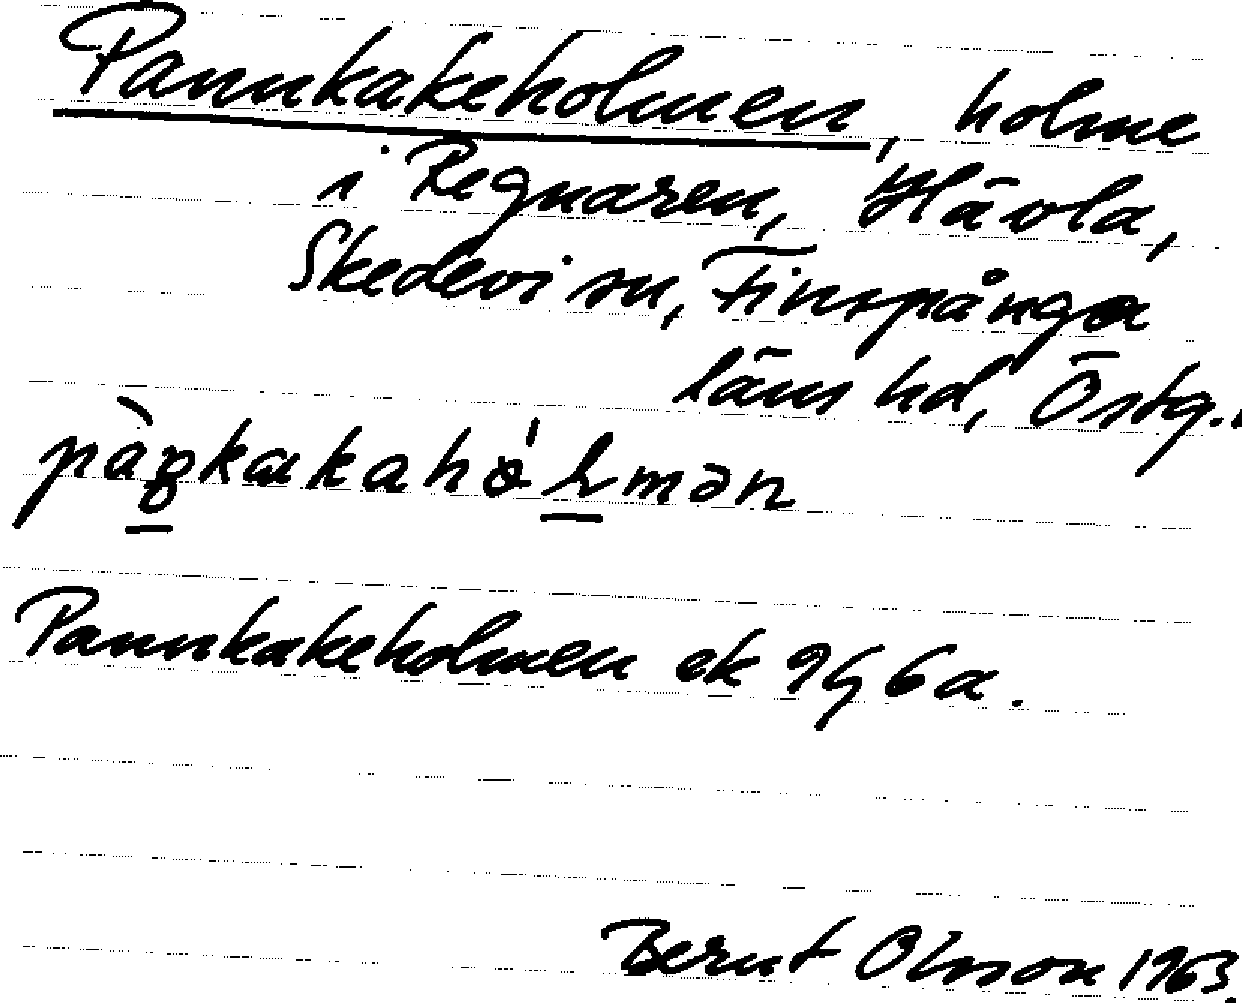 Pannkakeholmen, holme
i Regnaren, Hävla,
Skedevi sn, Finspånga
läns hd, Östg.
Pannkakeholmen ek 9G 6a.
Bernt Olsson 1963.